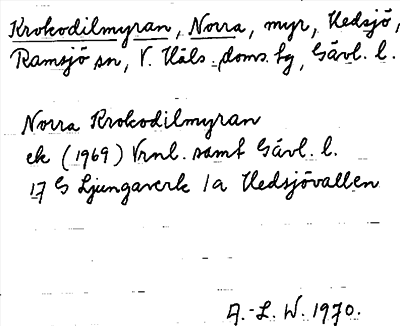 Krokodilmyran, Norra, myr, Hedsjö,
Ramsjö sn, V. Häls. doms. tg, Gävl. l.
Norra Krokodilmyran
ek (1969) Vrnl. samt Gävl. l.
17 G Ljungaverk 1a Hedsjövallen
A.-L. W. 1970.